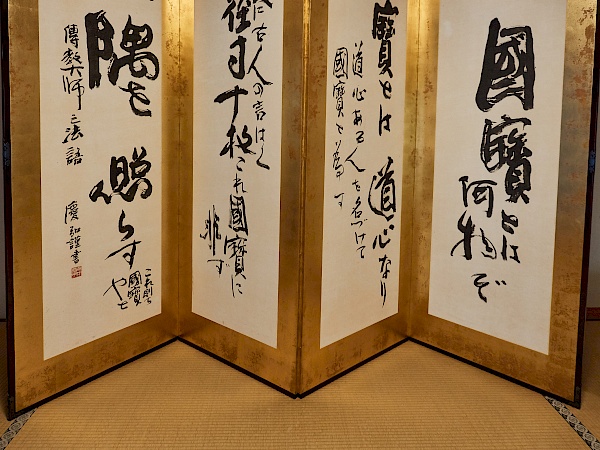 國寶とは
何物ぞ
寶とは道心なり
道心ある人を名づけて
國寶と為す
に古人の言はく
徑寸十枚これ國寶に
非ず
隅を照らす
これ則ち
國寶
傳教大師之法語
謹書